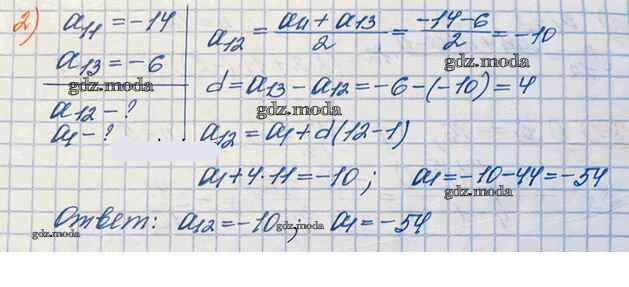 2) a₁₁ = -14
a₁₃ = -6
gdz.moda
a₁₂ - ?
a₁ - ?
a₁₂ = (a₁₁ + a₁₃)/2 = (-14-6)/2 = -10
gdz.moda
d = a₁₃ - a₁₂ = -6 - (-10) = 4
gdz.moda
a₁₂ = a₁ + d(12-1)
a₁ + 4·11 = -10; a₁ = -10-44 = -54
gdz.moda
Ответ: a₁₂ = -10; a₁ = -54
gdz.moda
gdz.moda